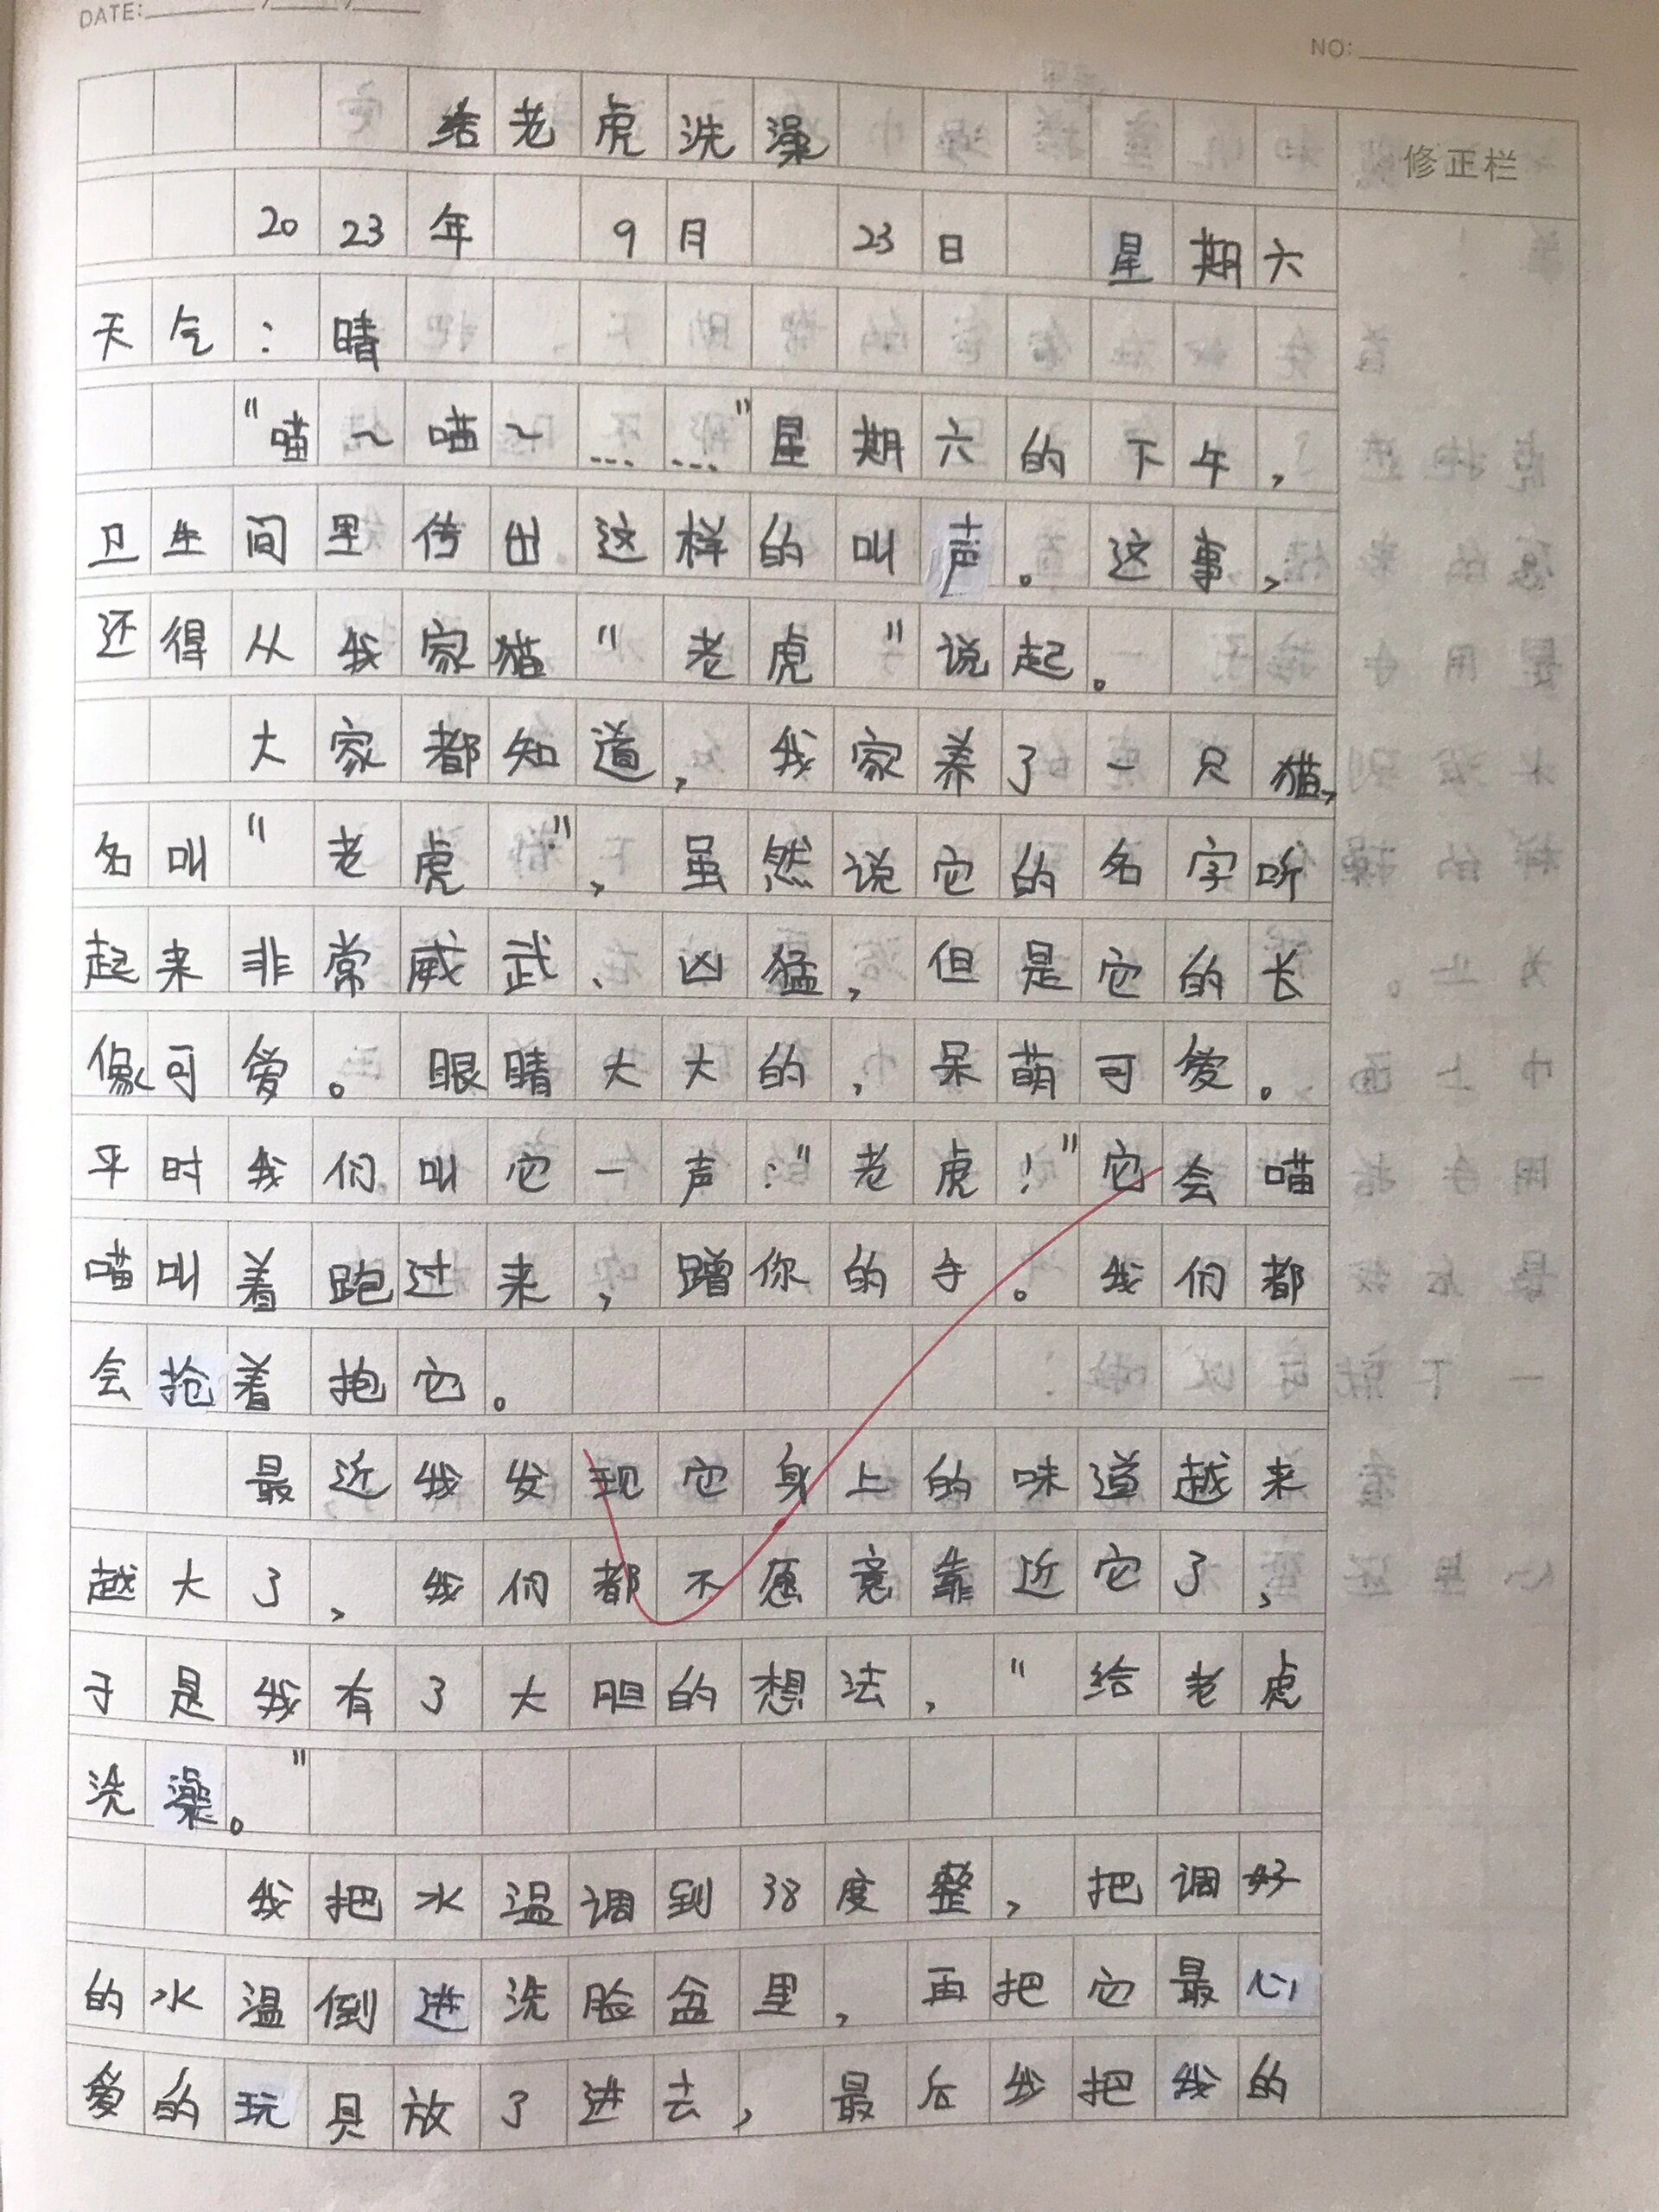 DATE: / /
NO:
给老虎洗澡
修正栏
2023年 9月 23日 星期六
天气：晴
"喵~喵~……"星期六的下午，
卫生间里传出这样的叫声。这事，
还得从我家猫"老虎"说起。
大家都知道，我家养了一只猫，
名叫"老虎"，虽然说它的名字听
起来非常威武、凶猛，但是它的长
像可爱。眼睛大大的，呆萌可爱。
平时我们叫它一声："老虎！"它会喵
喵叫着跑过来，蹭你的手。我们都
会抢着抱它。
最近我发现它身上的味道越来
越大了，我们都不愿意靠近它了，
于是我有了大胆的想法，"给老虎
洗澡。"
我把水温调到38度整，把调好
的水温倒进洗脸盆里，再把它最心
爱的玩具放了进去，最后我把我的